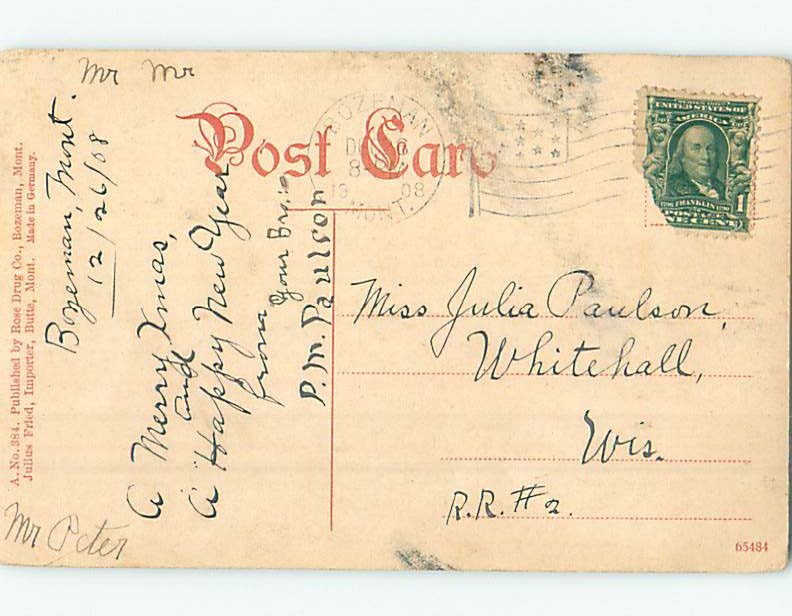 Mr Mr
Post Card
BOZEMAN
8
19 08
MONT.
SERIES 1902
UNITED STATES OF
AMERICA
FRANKLIN
POSTAGE
1
ONE CENT
A. No. 384. Published by Rose Drug Co., Bozeman, Mont.
Julius Fried, Importer, Butte, Mont. Made in Germany.
Bozeman, Mont.
12/26/08
A Merry Xmas,
and
A Happy New Year
from
your Bro.
P. M. Paulson
Miss Julia Paulson,
Whitehall,
Wis.
R.R. #2.
Mr Peter
65484